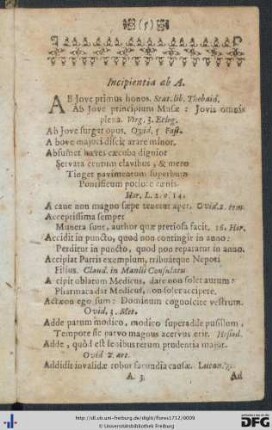 (5)
Incipientia ab A.
AB Jove primus honos. Stat. lib. Thebaid.
Ab Jove principium Musæ: Jovis omnia
plena. Virg. 3. Eclog.
Ab Jove surgat opus. Ovid. 5 Fast.
A bove majori discit arare minor.
Absumet hæres cæcuba dignior
Servata centum clavibus, & mero
Tinget pavimentum superbum
Pontificum potiore cœnis.
Hor. L. 2. o 14.
A cane non magno sæpe tenetur aper. Ovid. 2. rem.
Acceptissima semper
Munera sunt, author quæ pretiosa facit. 16. Her.
Accidit in puncto, quod non contingit in anno:
Perditur in puncto, quod non reparatur in anno.
Accipiat Patris exemplum, tribuatque Nepoti
Filius. Claud. in Manlii Consulatu
Accipit oblatum Medicus, dare non solet aurum:
Pharmaca dat Medicus, non solet accipere.
Actæon ego sum: Dominum cognoscite vestrum.
Ovid. 3. Met.
Adde parum modico, modico superadde pusillum,
Tempore sic parvo magnus acervus erit. Hesiod.
Adde, quòd est levibus rerum prudentia major.
Ovid
Addidit invalidæ robur facundia causæ. Lucan.
A. 3. Ad
http://dl.ub.uni-freiburg.de/diglit/flores1712/0009
© Universitätsbibliothek Freiburg
DFG